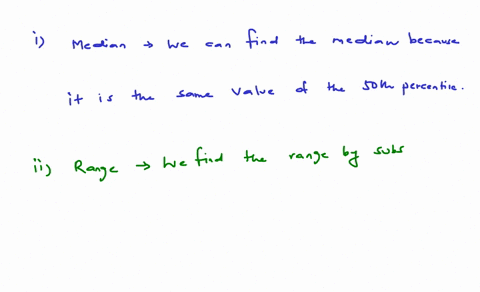 i) Median → We can find the median because
it is the same value of the 50th percentile.
ii) Range → We find the range by subs